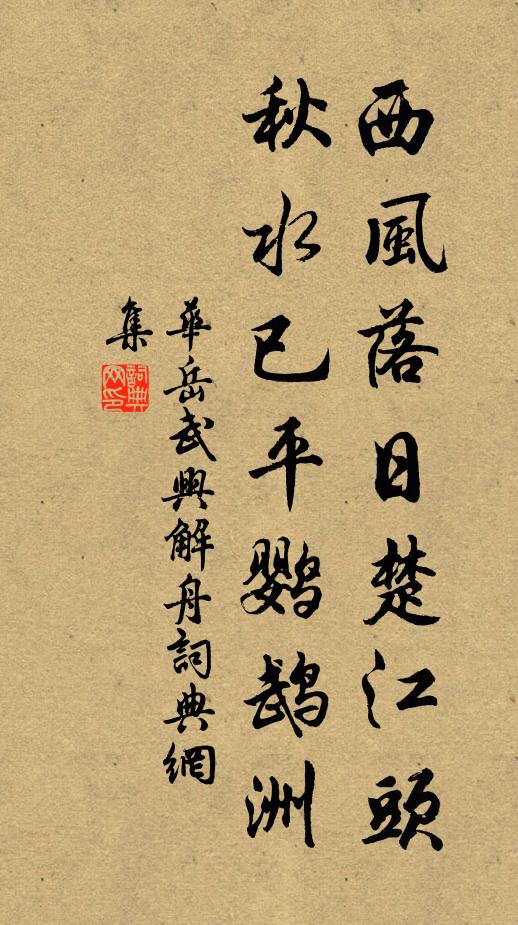 西風落日楚江頭
秋水已平鸚鵡洲
華岳武興解舟詞典網
集
詞典網印